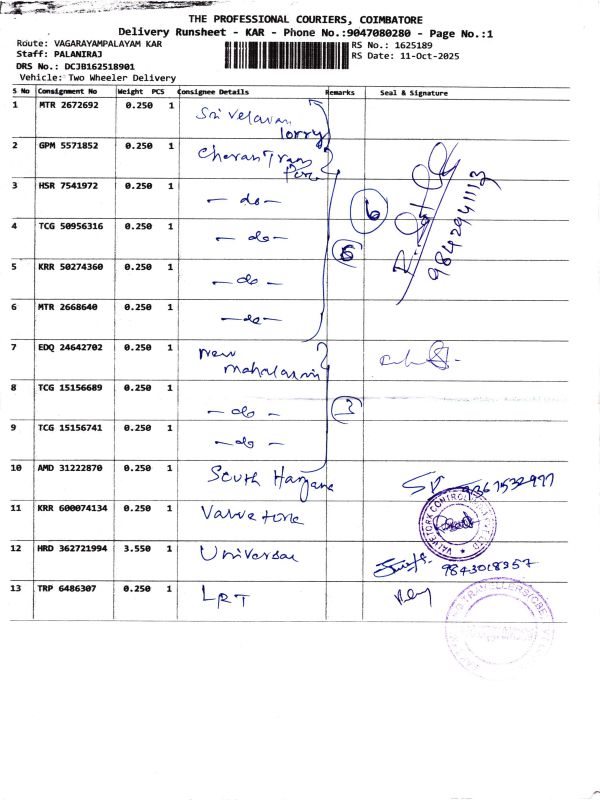 THE PROFESSIONAL COURIERS, COIMBATORE
Delivery Runsheet - KAR - Phone No.:9047080280 - Page No.:1
Route: VAGARAYAMPALAYAM KAR
RS No.: 1625189
Staff: PALANIRAJ
RS Date: 11-Oct-2025
DRS No.: DCJB162518901
Vehicle: Two Wheeler Delivery
S No Consignment No Weight PCS Consignee Details Remarks Seal & Signature
1 MTR 2672692 0.250 1 Sri Velavan lorry
2 GPM 5571852 0.250 1 Cheran Trans
3 HSR 7541972 0.250 1 - do - 6
9842941113
4 TCG 50956316 0.250 1 - do - 6
5 KRR 50274360 0.250 1 - do -
6 MTR 2668640 0.250 1 - do -
7 EDQ 24642702 0.250 1 New Mahalaxmi
8 TCG 15156689 0.250 1 - do - 3
9 TCG 15156741 0.250 1 - do -
10 AMD 31222870 0.250 1 South Haryana SV 9367532977
11 KRR 600074134 0.250 1 Valvetork
VALVETORK CONTROL
12 HRD 362721994 3.550 1 Universal 9843018357
13 TRP 6486307 0.250 1 LRT
TRAVELLERS